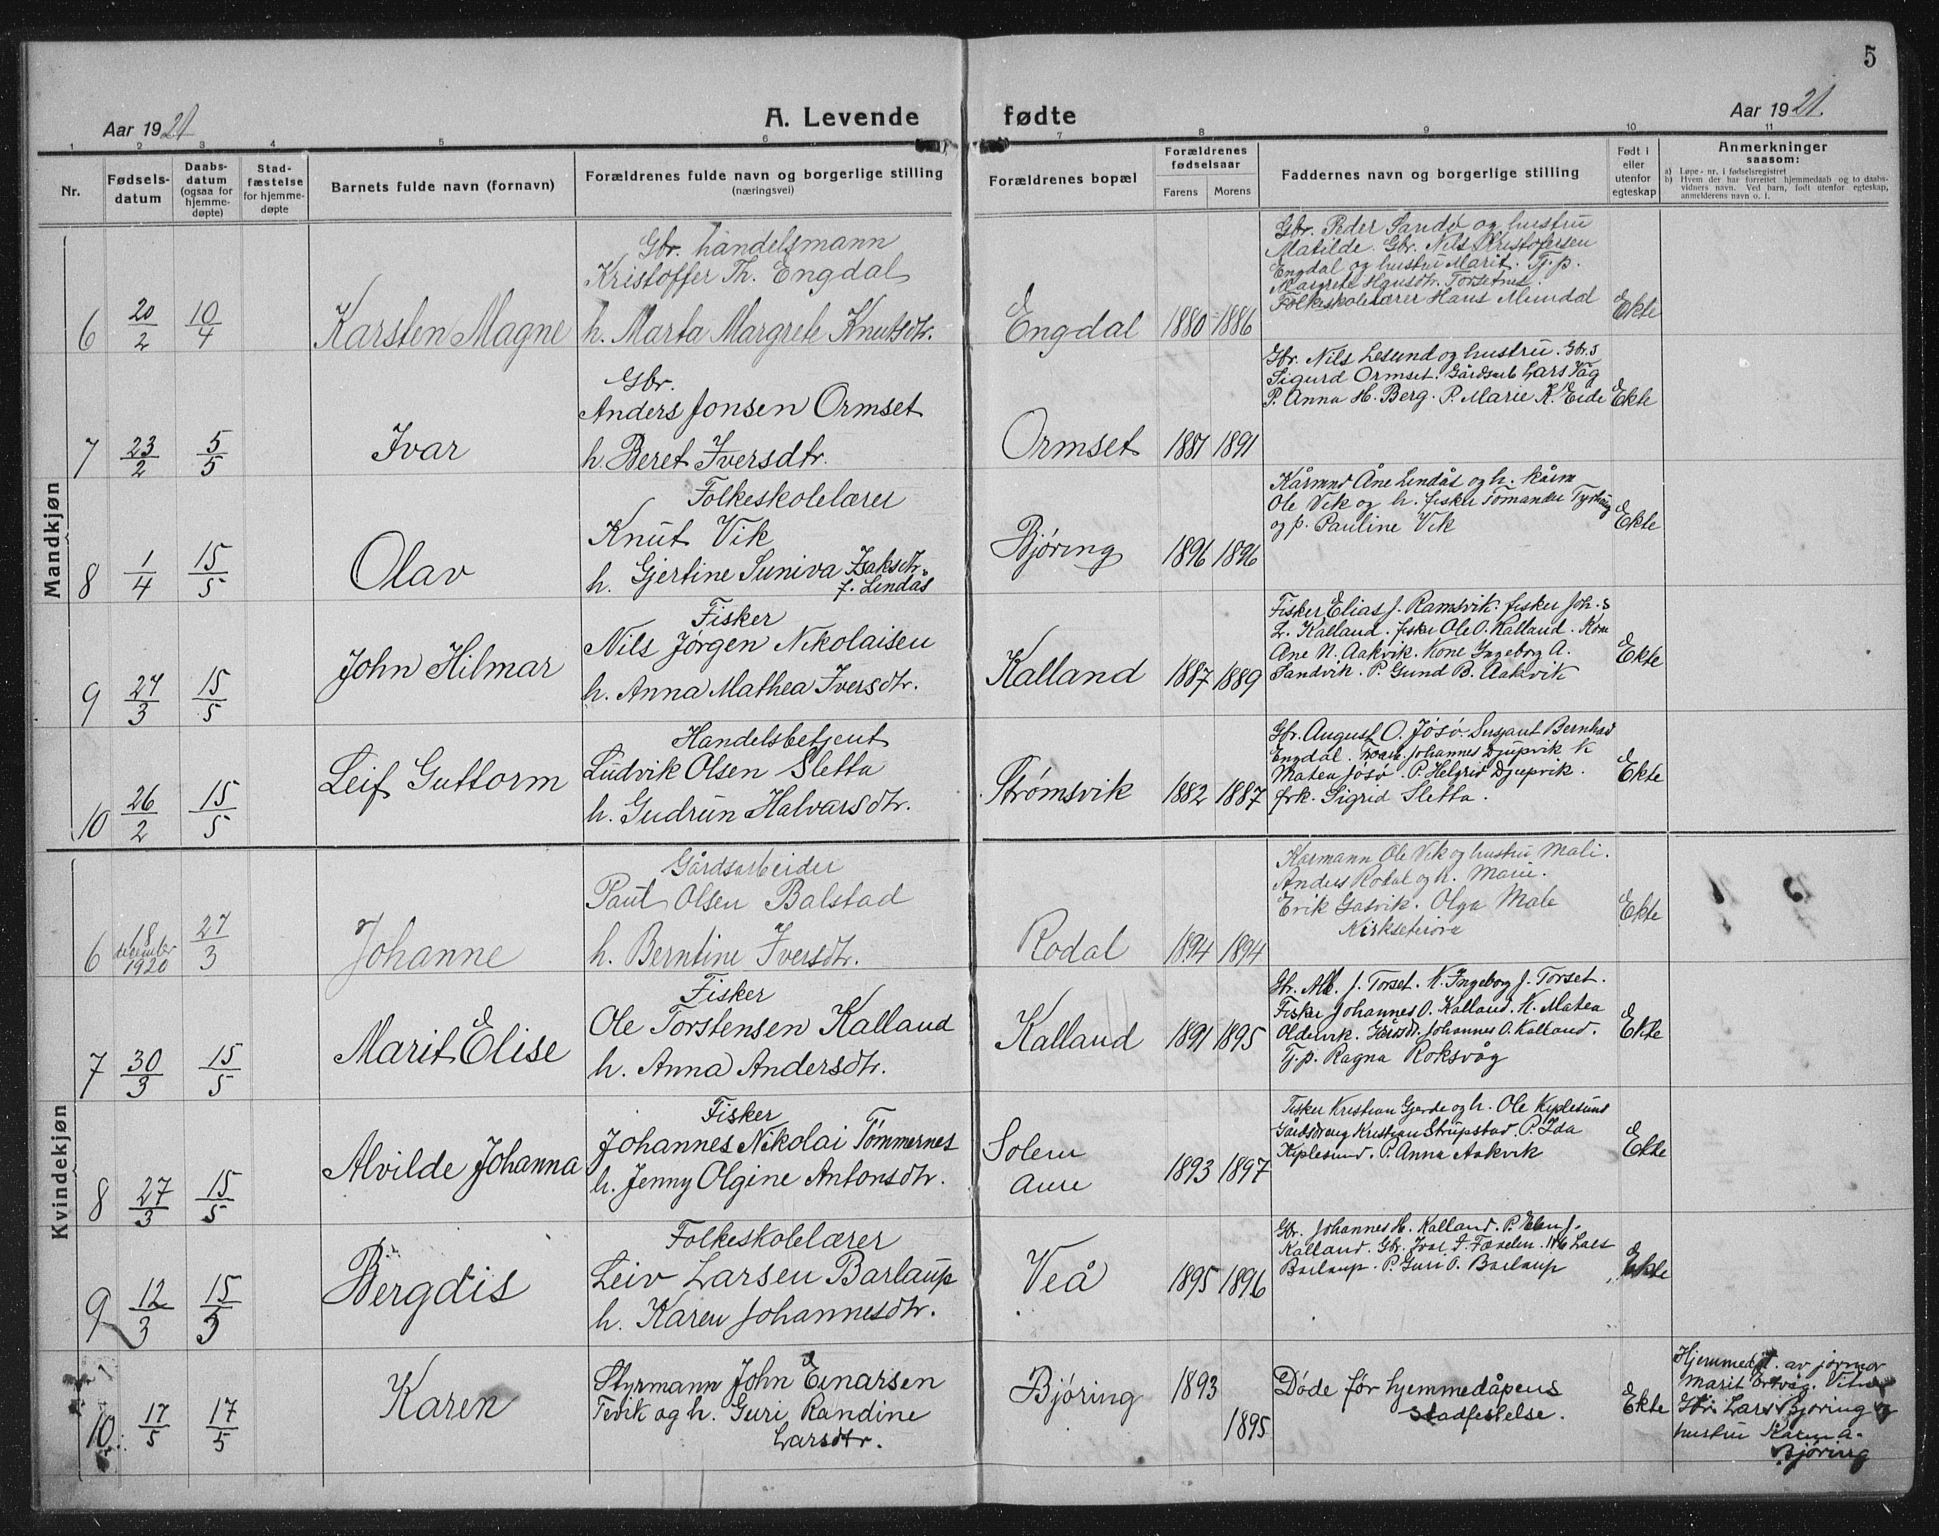 5
Aar 1921
A. Levende fødte
Aar 1921.
1 2 3 4 5 6 7 8 9 10 11
Nr.
Fødsels-
datum
Daabs-
datum
(ogsaa for
hjemme-
døpte)
Stad-
fæstelse
for hjemme-
døpte
Barnets fulde navn (fornavn)
Forældrenes fulde navn og borgerlige stilling
(næringsvei)
Forældrenes bopæl
Forældrenes
fødselsaar
Farens Morens
Faddernes navn og borgerlige stilling
Født i
eller
utenfor
egteskap
Anmerkninger
saasom:
a) Løpe-nr. i fødselsregistret
b) Hvem der har forrettet hjemmedaab og to daabs-
vidners navn. Ved barn, født utenfor egteskap,
anmelderens navn o. l.
Mandkjøn
6 20/2 10/4 Karsten Magne
Gbr. handelsmann
Kristoffer Th. Engdal
h. Marta Margrete Knutsdtr.
Engdal 1880 1886
Gbr. Peder Sandø og hustru
Matilde. Gbr. Nils Kristofersen
Engdal og hustru Marit. Tj. p.
Margrete Hansdtr. Torsetnes.
Folkeskolelærer Hans Mundal
Ekte
7 23/2 5/5 Ivar
Gbr.
Anders Jonsen Ormset
h. Beret Iversdtr.
Ormset 1881 1891
Gbr. Nils Lesund og hustru. Gbr.s
Sigurd Ormset. Gårdsarb Lars Våg
P. Anna H. Berg. P. Marie K. Eide
Ekte
8 1/4 15/5 Olav
Folkeskolelærer
Knut Vik
h. Gjertine Suniva Isaksdtr.
f. Lindås
Bjøring 1896 1896
Åne Lindås og h.
Ole Vik og h. fisker
og p. Pauline Vik
Ekte
9 27/3 15/5 John Hilmar
Fisker
Nils Jørgen Nikolaisen
h. Anna Mathea Iversdtr.
Kalland 1887 1889
Fisker Elias J. Ramsvik. fisker Joh.s
L. Kalland. fisker Ole O. Kalland. Kone
Ane N. Aakvik. Kone Ingeborg A.
Sandvik. P. Gund B. Aakvik
Ekte
10 26/2 15/5 Leif Guttorm
Handelsbetjent
Ludvik Olsen Sletta
h. Gudrun Halvarsdtr.
Strømsvik 1882 1887
Gbr. August O. Jøsø Bernhard
Engdal. Johannes Djupvik K
Matea Jøsø. P. Helgrid Djupvik.
frk. Sigrid Sletta.
Ekte
Kvindekjøn
6 18 december 1920 27/3 Johanne
Gårdsarbeider
Paul Olsen Balstad
h. Berntine Iversdtr.
Rodal 1894 1894
Kaarmann Ole Vik og hustru Mali.
Anders Rodal og h. Marie.
Erik Gasvik. Olga Male
Ekte
7 30/3 15/5 Marit Elise
Fisker
Ole Torstensen Kalland
h. Anna Andersdtr.
Kalland 1891 1895
Gbr. J. Torset. K. Ingeborg J. Torset.
Fisker Johannes O. Kalland. K. Matea
Oldervik. Johannes O. Kalland.
Tj. p. Ragna Roksvåg
Ekte
8 27/3 15/5 Alvilde Johanna
Fisker
Johannes Nikolai Tømmernes
h. Jenny Olgine Antonsdtr.
Solem
Aure
1893 1897
Fisker Kristian Gjerde og h. Ole Kiplesund
Gårddreng Kristian Strupstad. P. Ida
Kiplesund. P. Anna Aakvik
Ekte
9 12/3 15/5 Bergdis
Folkeskolelærer
Leiv Larsen Barlaup
h. Karen Johannesdtr.
Veå 1895 1896
Gbr. Johannes H. Kalland. P. Elen J.
Kalland. Gbr. Ivar Lars
Barlaup. P. Guri O. Barlaup
Ekte
10 17/5 17/5 Karen
Styrmann John Einarsen
Tevik og h. Guri Randine
Larsdtr.
Bjøring 1893 1895
Døde før hjemmedåpens
stadfestelse.
Ekte
Hjemmedøpt. av jormor
Marit Ertvåg.
Gbr. Lars Bjøring og
hustru Karen A.
Bjøring